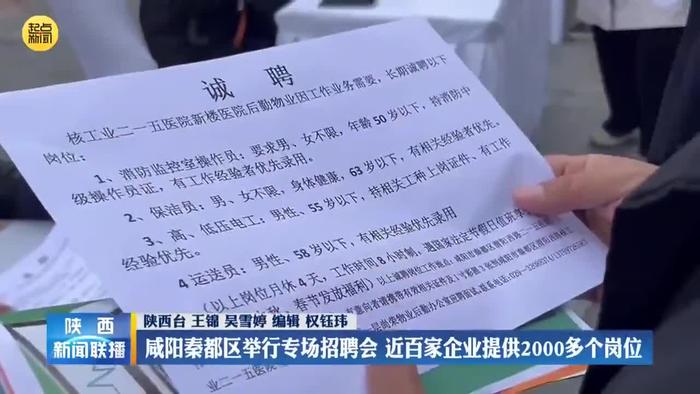 起点新闻
诚 聘
核工业二一五医院新楼医院后勤物业因工作业务需要,长期诚聘以下
岗位:
1、消防监控室操作员:要求男、女不限,年龄50岁以下,持消防中
级操作员证,有工作经验者优先录用。
2、保洁员:男、女不限,身体健康,63岁以下,有相关经验者优先。
3、高、低压电工:男性、55岁以下,持相关工种上岗证件、有工作
经验优先。
4运送员:男性、58岁以下,有相关经验优先录用
(以上岗位月休4天,工作时间8小时制,遇国家法定节假日值班
春节发放福利)
陕西
新闻联播
陕西台 王锦 吴雪婷 编辑 权钰玮
咸阳秦都区举行专场招聘会 近百家企业提供2000多个岗位